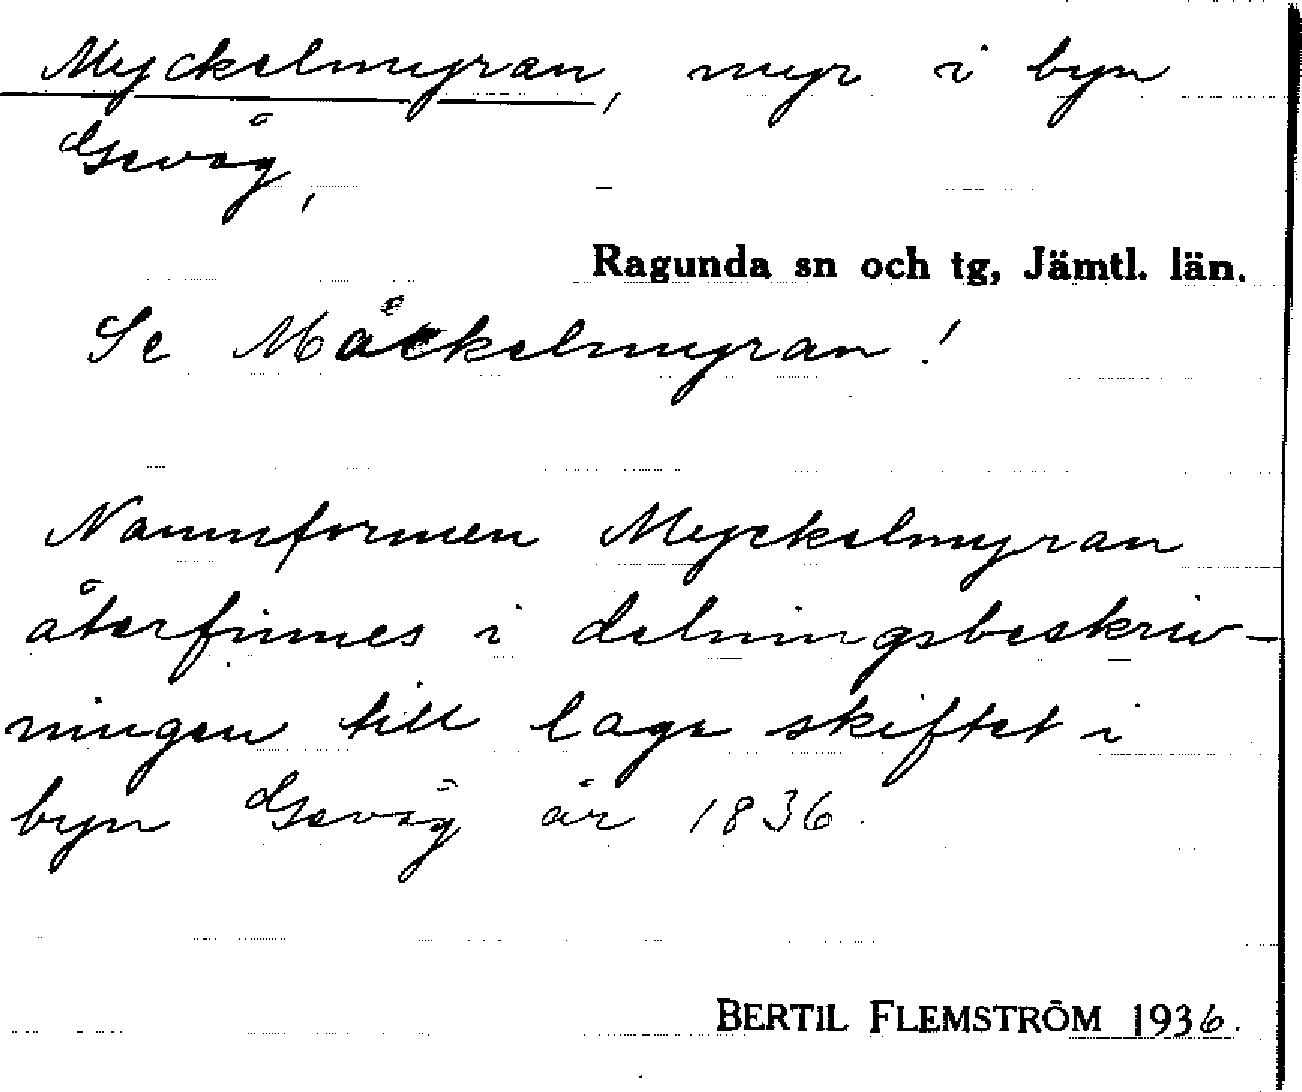 Myckelmyran, myr i byn
Gevåg,
Ragunda sn och tg, Jämtl. län.
Se Måckelmyran!
Namnformen Myckelmyran
återfinnes i delningsbeskriv-
ningen till laga skiftet i
byn Gevåg år 1836.
BERTIL FLEMSTRÖM 1936.